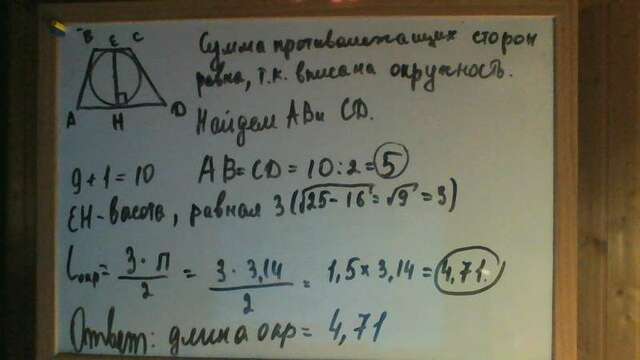 B E C
A H D
Сумма противолежащих сторон
равна, т.к. вписана окружность.
Найдем AB и CD.
9+1=10 AB=CD=10:2=5
EH-высота, равная 3(√25-16=√9=3)
Lокр=3·П/2=3·3,14/2=1,5×3,14=4,71.
Ответ: длина окр=4,71